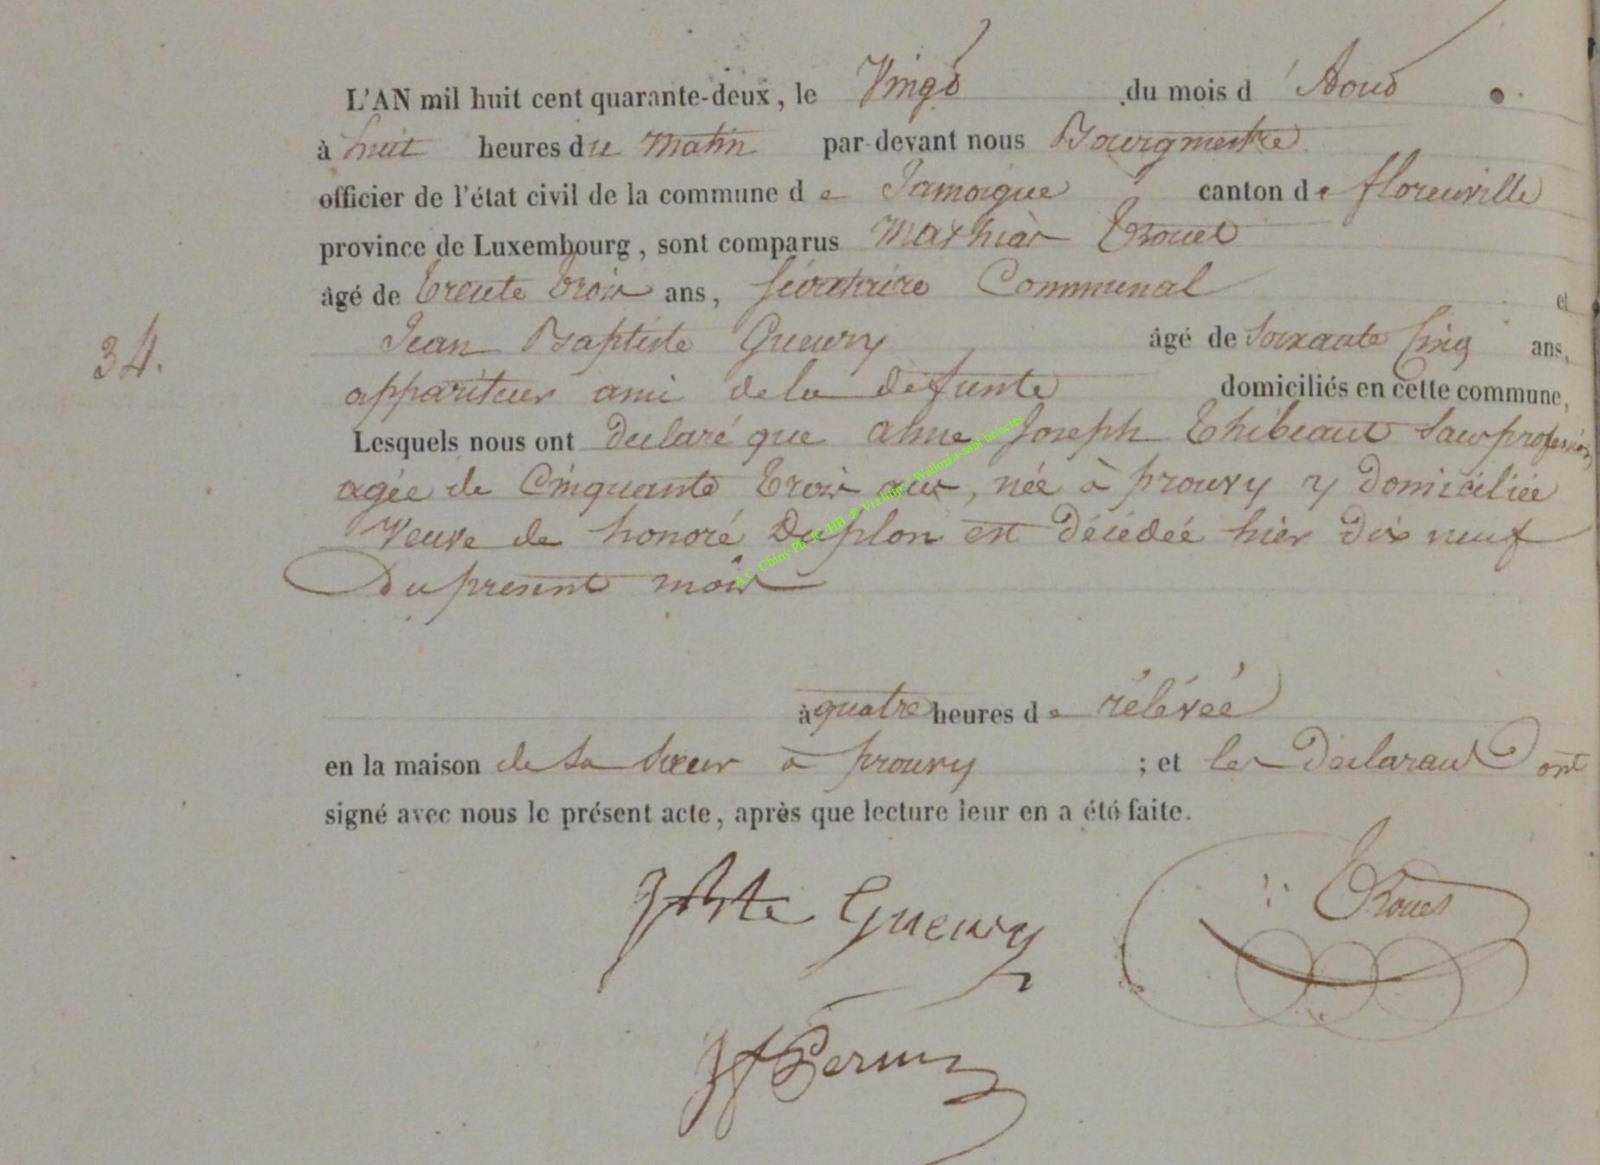 L'AN mil huit cent quarante-deux, le Vingt du mois d'Aout
à huit heures du matin par-devant nous Bourgmestre
officier de l'état civil de la commune de Jamoigne canton de florenville
province de Luxembourg, sont comparus Mathias Trouet
âgé de trente trois ans, Sécrétaire Communal et
Jean Baptiste Gueury âgé de Soixante Cinq ans,
34.
appariteur ami de la défunte domiciliés en cette commune,
Lesquels nous ont declaré que anne Joseph Thibeaut Sans profession
agée de Cinquante Trois ans, née à prouvy y domiciliée
Veuve de honoré Duplon est décédée hier dix neuf
Du present mois
à quatre heures de rélévée
en la maison de sa sœur à prouvy ; et les Déclarant ont
signé avec nous le présent acte, après que lecture leur en a été faite.
JBte Gueury Trouet